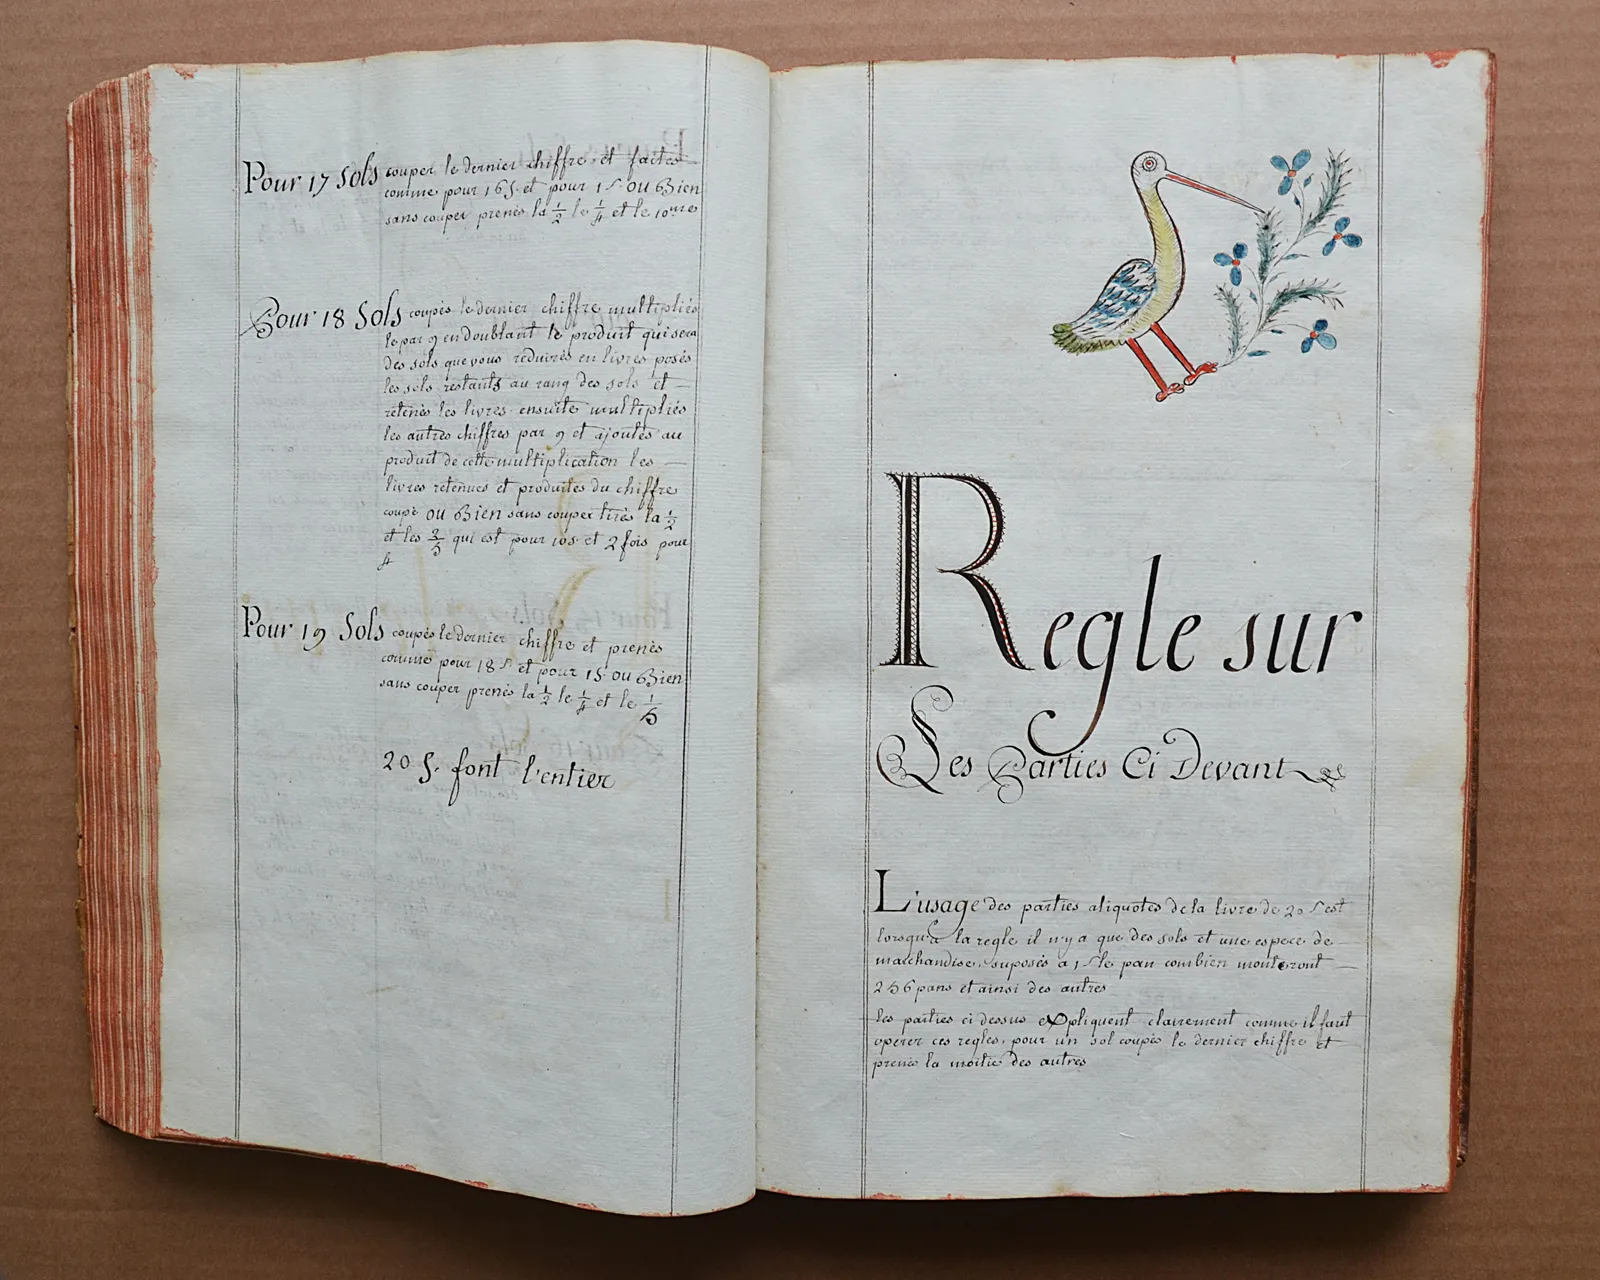 Pour 17 sols couper le dernier chiffre et faites
comme pour 16 s. et pour 1 s. ou Bien
sans couper prenés la 1/2 le 1/4 et le 10me
Pour 18 Sols coupés le dernier chiffre multipliés
le par 9 en doublant le produit qui sera
des sols que vous reduirés en livres posés
les sols restants au rang des sols et
retenés les livres ensuite multipliés
les autres chiffres par 9 et ajoutés au
produit de cette multiplication les
livres retenues et produites du chiffre
coupé ou Bien sans couper tirés la 1/2
et les 2/5 qui est pour 10s. et 2 fois pour
4
Pour 19 Sols coupés le dernier chiffre et prenés
comme pour 18 s. et pour 1 s. ou Bien
sans couper prenés la 1/2 le 1/4 et le 1/5
20 s. font l'entier
Regle sur
Les Parties Ci Devant
L'usage des parties aliquotes de la livre de 20 s est
lorsqu'a la regle il n'y a que des sols et une espece de
marchandise, suposés a 1 s le pan combien monteront
256 pans et ainsi des autres
les parties ci dessus expliquent clairement comme il faut
operer ces regles, pour un sol coupés le dernier chiffre et
prenés la moitie des autres